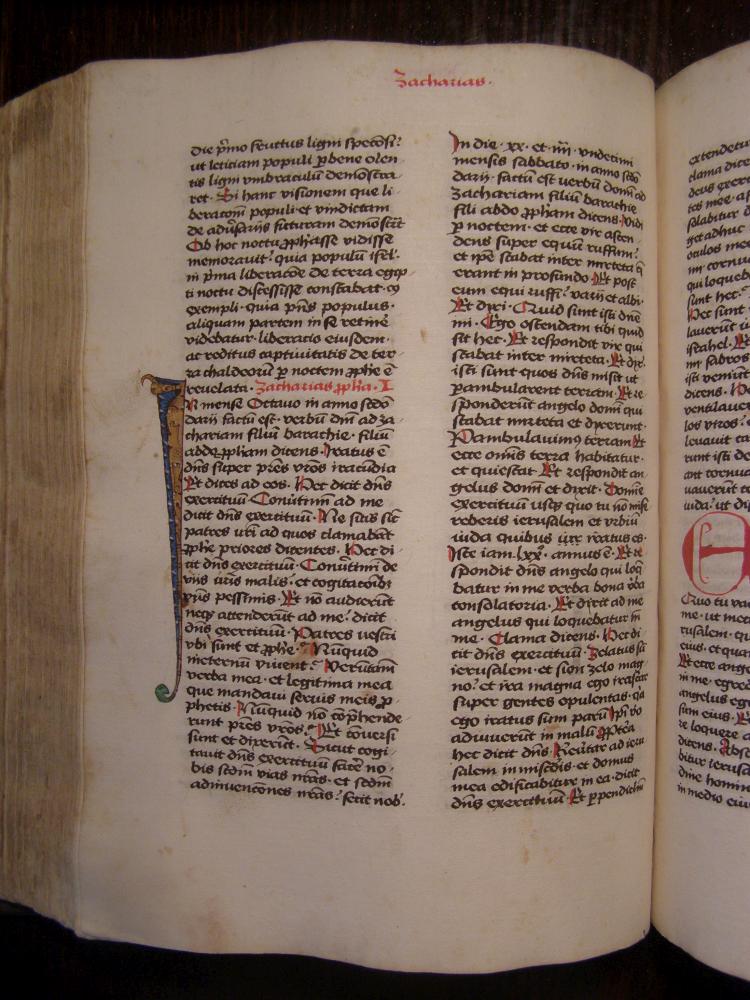 Zacharias.
die p̄mo fructus ligni speciosi?
ut leticiam populi ꝓbene olen
tis ligni vmbraculū demōstra
ret. Si hanc visionem que li-
beratōm populi et vindictam
de adūsarijs futuram demōst̄t
Ob hoc noctu ꝓph̄asse vidisse
memorauit? quia populū isr̄l.
in p̄ma liberacōe de terra egip-
ti noctu discessisse constabat.
exempli. quia p̄ns populus.
aliquam partem in se retinē
videbatur. liberatio eiusdem.
ac reditus captiuitatis de ter-
ra chaldeorū ꝑ noctem ꝓph̄e ē
reuelata. Zacharias ꝓph̄a. I
N mense Octauo in anno scd̄o
darij factū est. verbū dn̄i ad za-
chariam filiū barachie. filiū
abdo ꝓph̄am dicens. Iratus ē
dn̄s super pr̄es vr̄os iracūdia
Et dices ad eos. Hec dicit dn̄s
exercituū Conūtimī ad me
dicit dn̄s exercituū. Ne sitis sic̄
patres vr̄i ad quos clamabāt
ꝓph̄e priores dicentes. Hec di-
cit dn̄s exercituū. Conūtimī de
vijs vr̄is malis. et cogitacōibꝰ
vr̄is pessimis. Et nō audierūt
neqꝫ attenderūt ad me? dicit
dn̄s exercituū. Patres vestri
vbi sunt et ꝓph̄e. Nūquid
ineternū viuent? Verūtam̄
verba mea. et legitima mea
que mandaui seruis meis ꝓ-
phetis. Nūquid nō cōp̄hende-
runt pr̄es vr̄os. Et cōuersi
sunt et dixerūt. Sicut cogi-
tauit dn̄s exercituū facē no-
bis scdm̄ vias nr̄as. et scdm̄
adinuencōnes nr̄as? fecit nob̄.
In die. xx. et. iiij. vndecimi
mensis sabbath. in anno scd̄o
darij. factū est verbū dom̄ ad
Zachariam filiū barachie
filij abdo ꝓph̄am dicens. Vidi
ꝑ noctem. et ecce vir ascen-
dens super equū ruffum?
et ip̄e stabat inter mirteta q̄
erant in profundo. Et post
eum equi ruffi? varij et albi.
Et dixi. Quid sunt isti dn̄e
mi. Ego ostendam tibi quid
sit hec. Et respondit vir qui
stabat inter mirteta. Et dix̄.
isti sunt quos dn̄s misit ut
ꝑambularent terram. Et re-
sponderūt angelo domī qui
stabat mirteta et dixerunt.
Pambulauimꝰ terram. Et
ecce om̄s terra habitatur.
et quiescat. Et respondit an-
gelus domī et dixit. Domīe
exercituū usqꝫ quo tu nō mise-
reberis ierusalem et vrbiū
iuda quibus iratus es.
Iste iam. lxxꝰ. annus ē. Et re-
spondit dn̄s angelo qui loq̄
batur in me verba bona v̄ba
consolatoria. Et dixit ad me
angelus qui loquebatur in
me. Clama dicens. Hec di-
cit dn̄s exercituū. Zelatus sū
ierusalem. et sion zelo mag-
no. et ira magna ego irascor
super gentes opulentas. q̄a
ego iratus sum parū Ip̄i v̄o
adiuuerūt in malū. Ꝓpt̄ea
hec dicit dn̄s. Reūtar ad ieru
salem in mīsc̄dijs. et domus
mea edificabitur in ea. dicit
dn̄s exercituū. Et ꝑpendiclm̄
extendetur
clama dice
deus exerci
tes mee. af
solabitur d
get adhuc
oculos meo
tuor cornua
qui loqueba
sunt hec.
Hec sunt
lauerūt i
israhel. Et
mi fabros
isti veniūt
dicens. H
ventilauer
los viros?
leuauit ca
runt isti de
ant cornua
uauerūt te
iuda. ut dis
E
Quo tu va
me. ut meti
rusalem. qu
eius. et qua
Et ecce ange
in me. egred
angelus eg
um eius. E
re loquere a
dicens. Absq
bitur ierusa
dine homin
in medio eiu